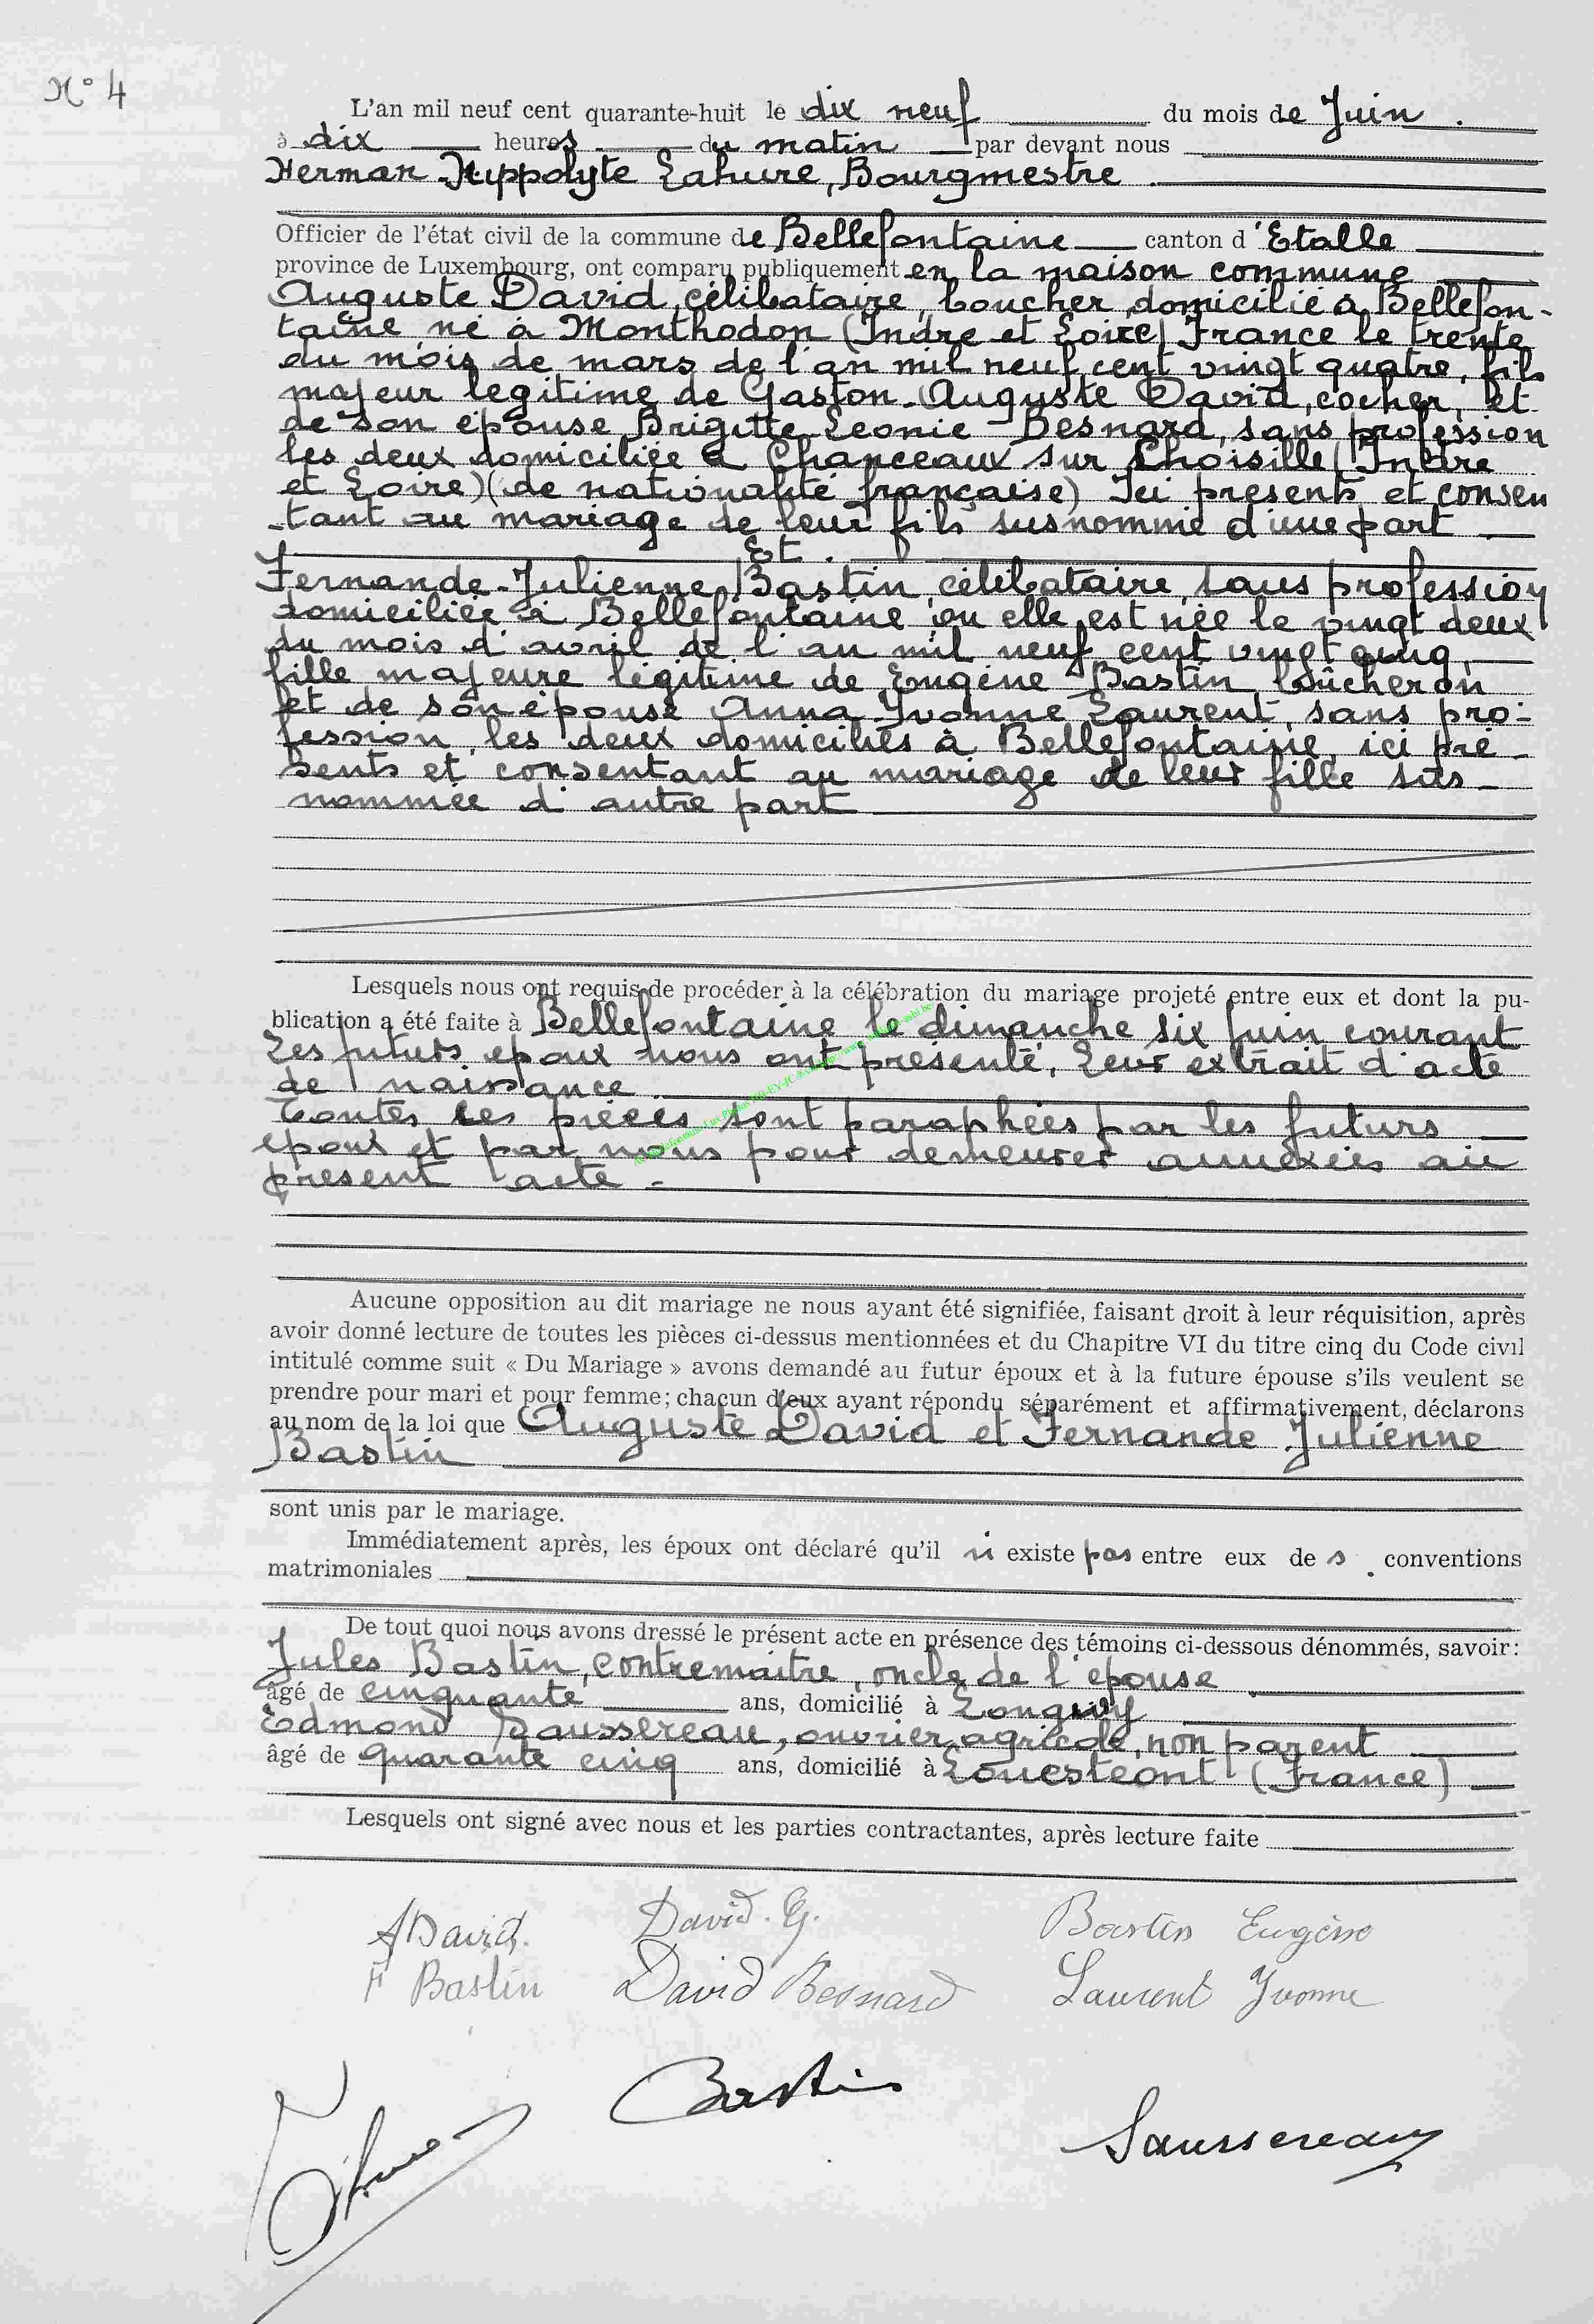 N° 4
L'an mil neuf cent quarante-huit le dix neuf du mois de Juin .
à dix heures du matin par devant nous
Herman-Hippolyte Lahure, Bourgmestre
Officier de l'état civil de la commune de Bellefontaine canton d'Etalle
province de Luxembourg, ont comparu publiquement en la maison commune
Auguste David, célibataire, boucher, domicilié à Bellefon-
taine, né à Monthodon (Indre et Loire) France le trente
du mois de mars de l'an mil neuf cent vingt quatre, fils
majeur legitime de Gaston-Auguste David, cocher, et
de son épouse Brigitte-Leonie Besnard, sans profession
les deux domiciliée à Chanceaux sur Choisille (Indre
et Loire) (de nationalité française) Ici présents et consen
-tant au mariage de leur fils susnommé d'une part
Et .
Fernande-Julienne Bastin, célibataire, sans profession
domiciliée à Bellefontaine, ou elle est née le vingt deux
du mois d'avril de l'an mil neuf cent vingt cinq,
fille majeure légitime de Eugène Bastin, bûcheron
et de son épouse Anna-Yvonne Laurent, sans pro-
fession, les deux domiciliés à Bellefontaine, ici pré-
sents et consentant au mariage de leur fille sus-
nommée d'autre part
Lesquels nous ont requis de procéder à la célébration du mariage projeté entre eux et dont la pu-
blication a été faite à Bellefontaine le dimanche six juin courant
Les futurs epoux nous ont présenté, leur extrait d'acte
de naissance
Toutes ces pièces sont paraphées par les futurs
epoux et par nous pour demeurer annexées au
présent acte -
Aucune opposition au dit mariage ne nous ayant été signifiée, faisant droit à leur réquisition, après
avoir donné lecture de toutes les pièces ci-dessus mentionnées et du Chapitre VI du titre cinq du Code civil
intitulé comme suit « Du Mariage » avons demandé au futur époux et à la future épouse s'ils veulent se
prendre pour mari et pour femme; chacun d'eux ayant répondu séparément et affirmativement, déclarons
au nom de la loi que Auguste David et Fernande Julienne
Bastin
sont unis par le mariage.
Immédiatement après, les époux ont déclaré qu'il n'existe pas entre eux de s . conventions
matrimoniales
De tout quoi nous avons dressé le présent acte en présence des témoins ci-dessous dénommés, savoir:
Jules Bastin, contremaitre, oncle de l'epouse
âgé de cinquante ans, domicilié à Longwy
Edmond Saussereau, ouvrier agricole, non parent
âgé de quarante cinq ans, domicilié à (France)
Lesquels ont signé avec nous et les parties contractantes, après lecture faite
A David. David. G. Bastin Eugène
F Bastin David Besnard Laurent Yvonne
Bastin
Saussereau